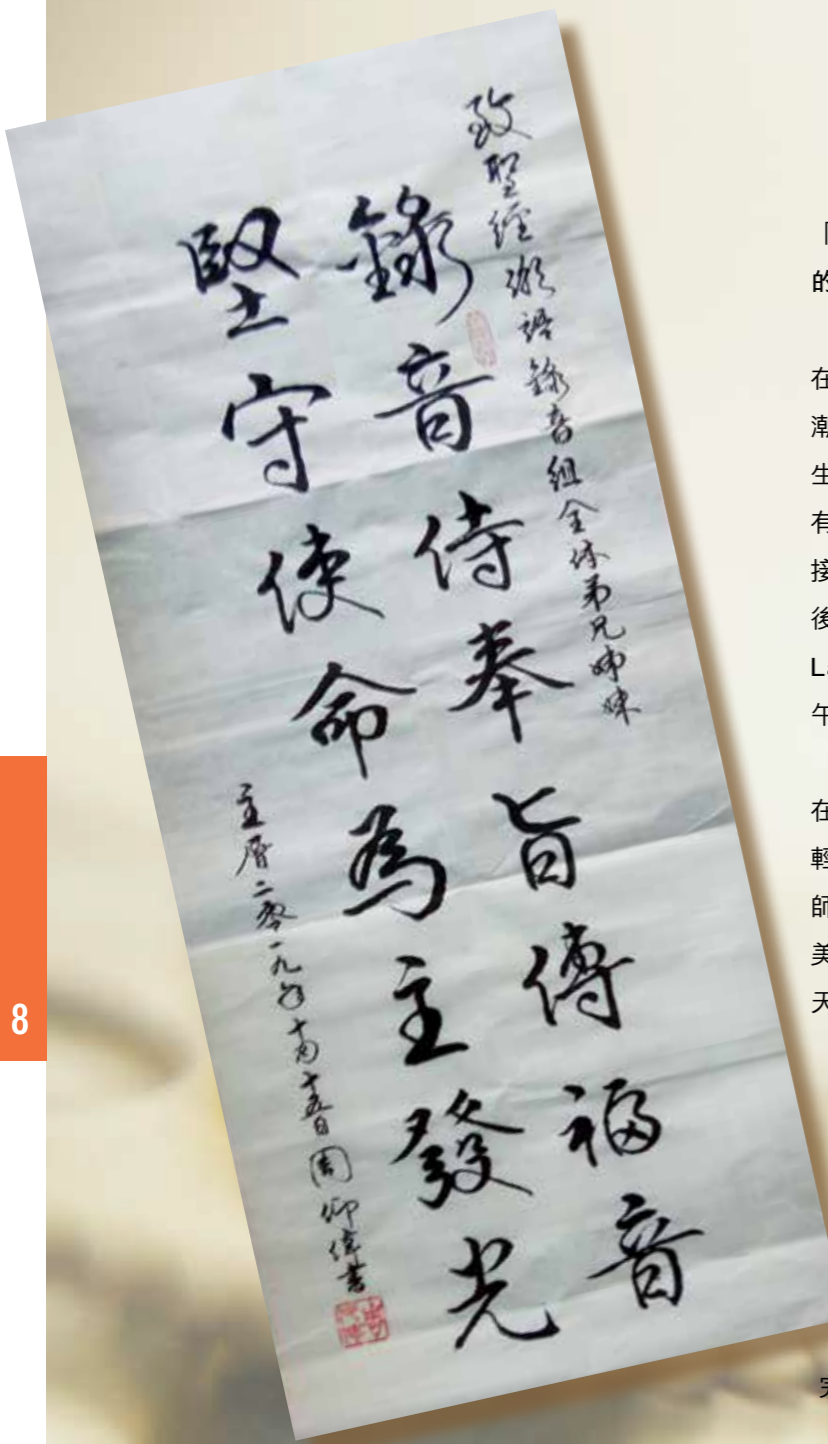 致聖經潮語錄音組全体弟兄姊妹
錄音侍奉旨傳福音
堅守使命為主發光
主曆二零一九年十月十五日周仰偉書
8
「
的
在
潮
生
有
接
後
L
午
在
輕
師
美
天